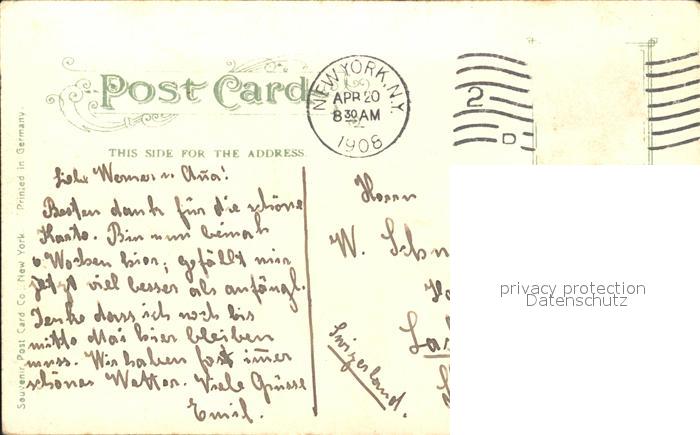 Post Card
NEW YORK, N.Y.
APR 20
8 30 AM
1908
2
D
THIS SIDE FOR THE ADDRESS
Souvenir Post Card Co., New York. Printed in Germany.
Liebe Werner u.
Besten dank für die schöne
Karte. Bin nun beinah
6 Wochen hier, gefällt mir
jetzt viel besser als anfängl.
Denke dass ich noch bis
mitte Mai hier bleiben
muss. Wir haben fast imer
schönes Wetter. Viele Grüsse
Emil.
Herrn
W. Schn
Switzerland.
privacy protection
Datenschutz